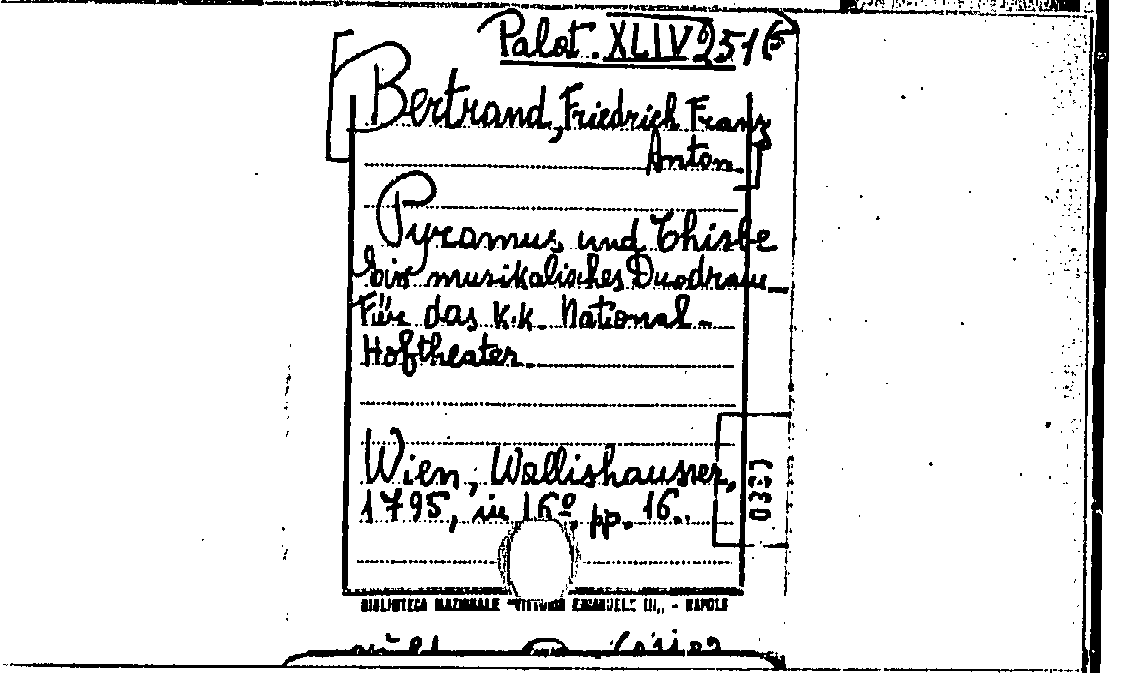 Palat. XLIV 251 (5
Bertrand, Friedrich Franz
Anton.
Pyramus und Thisbe
Ein musikalisches Duodram_
Für das K.K. National_
Hoftheater.
Wien, Wallishausser,
1795, in 16º, pp. 16.
BIBLIOTECA NAZIONALE "VITTORIO EMANUELE III" - NAPOLI